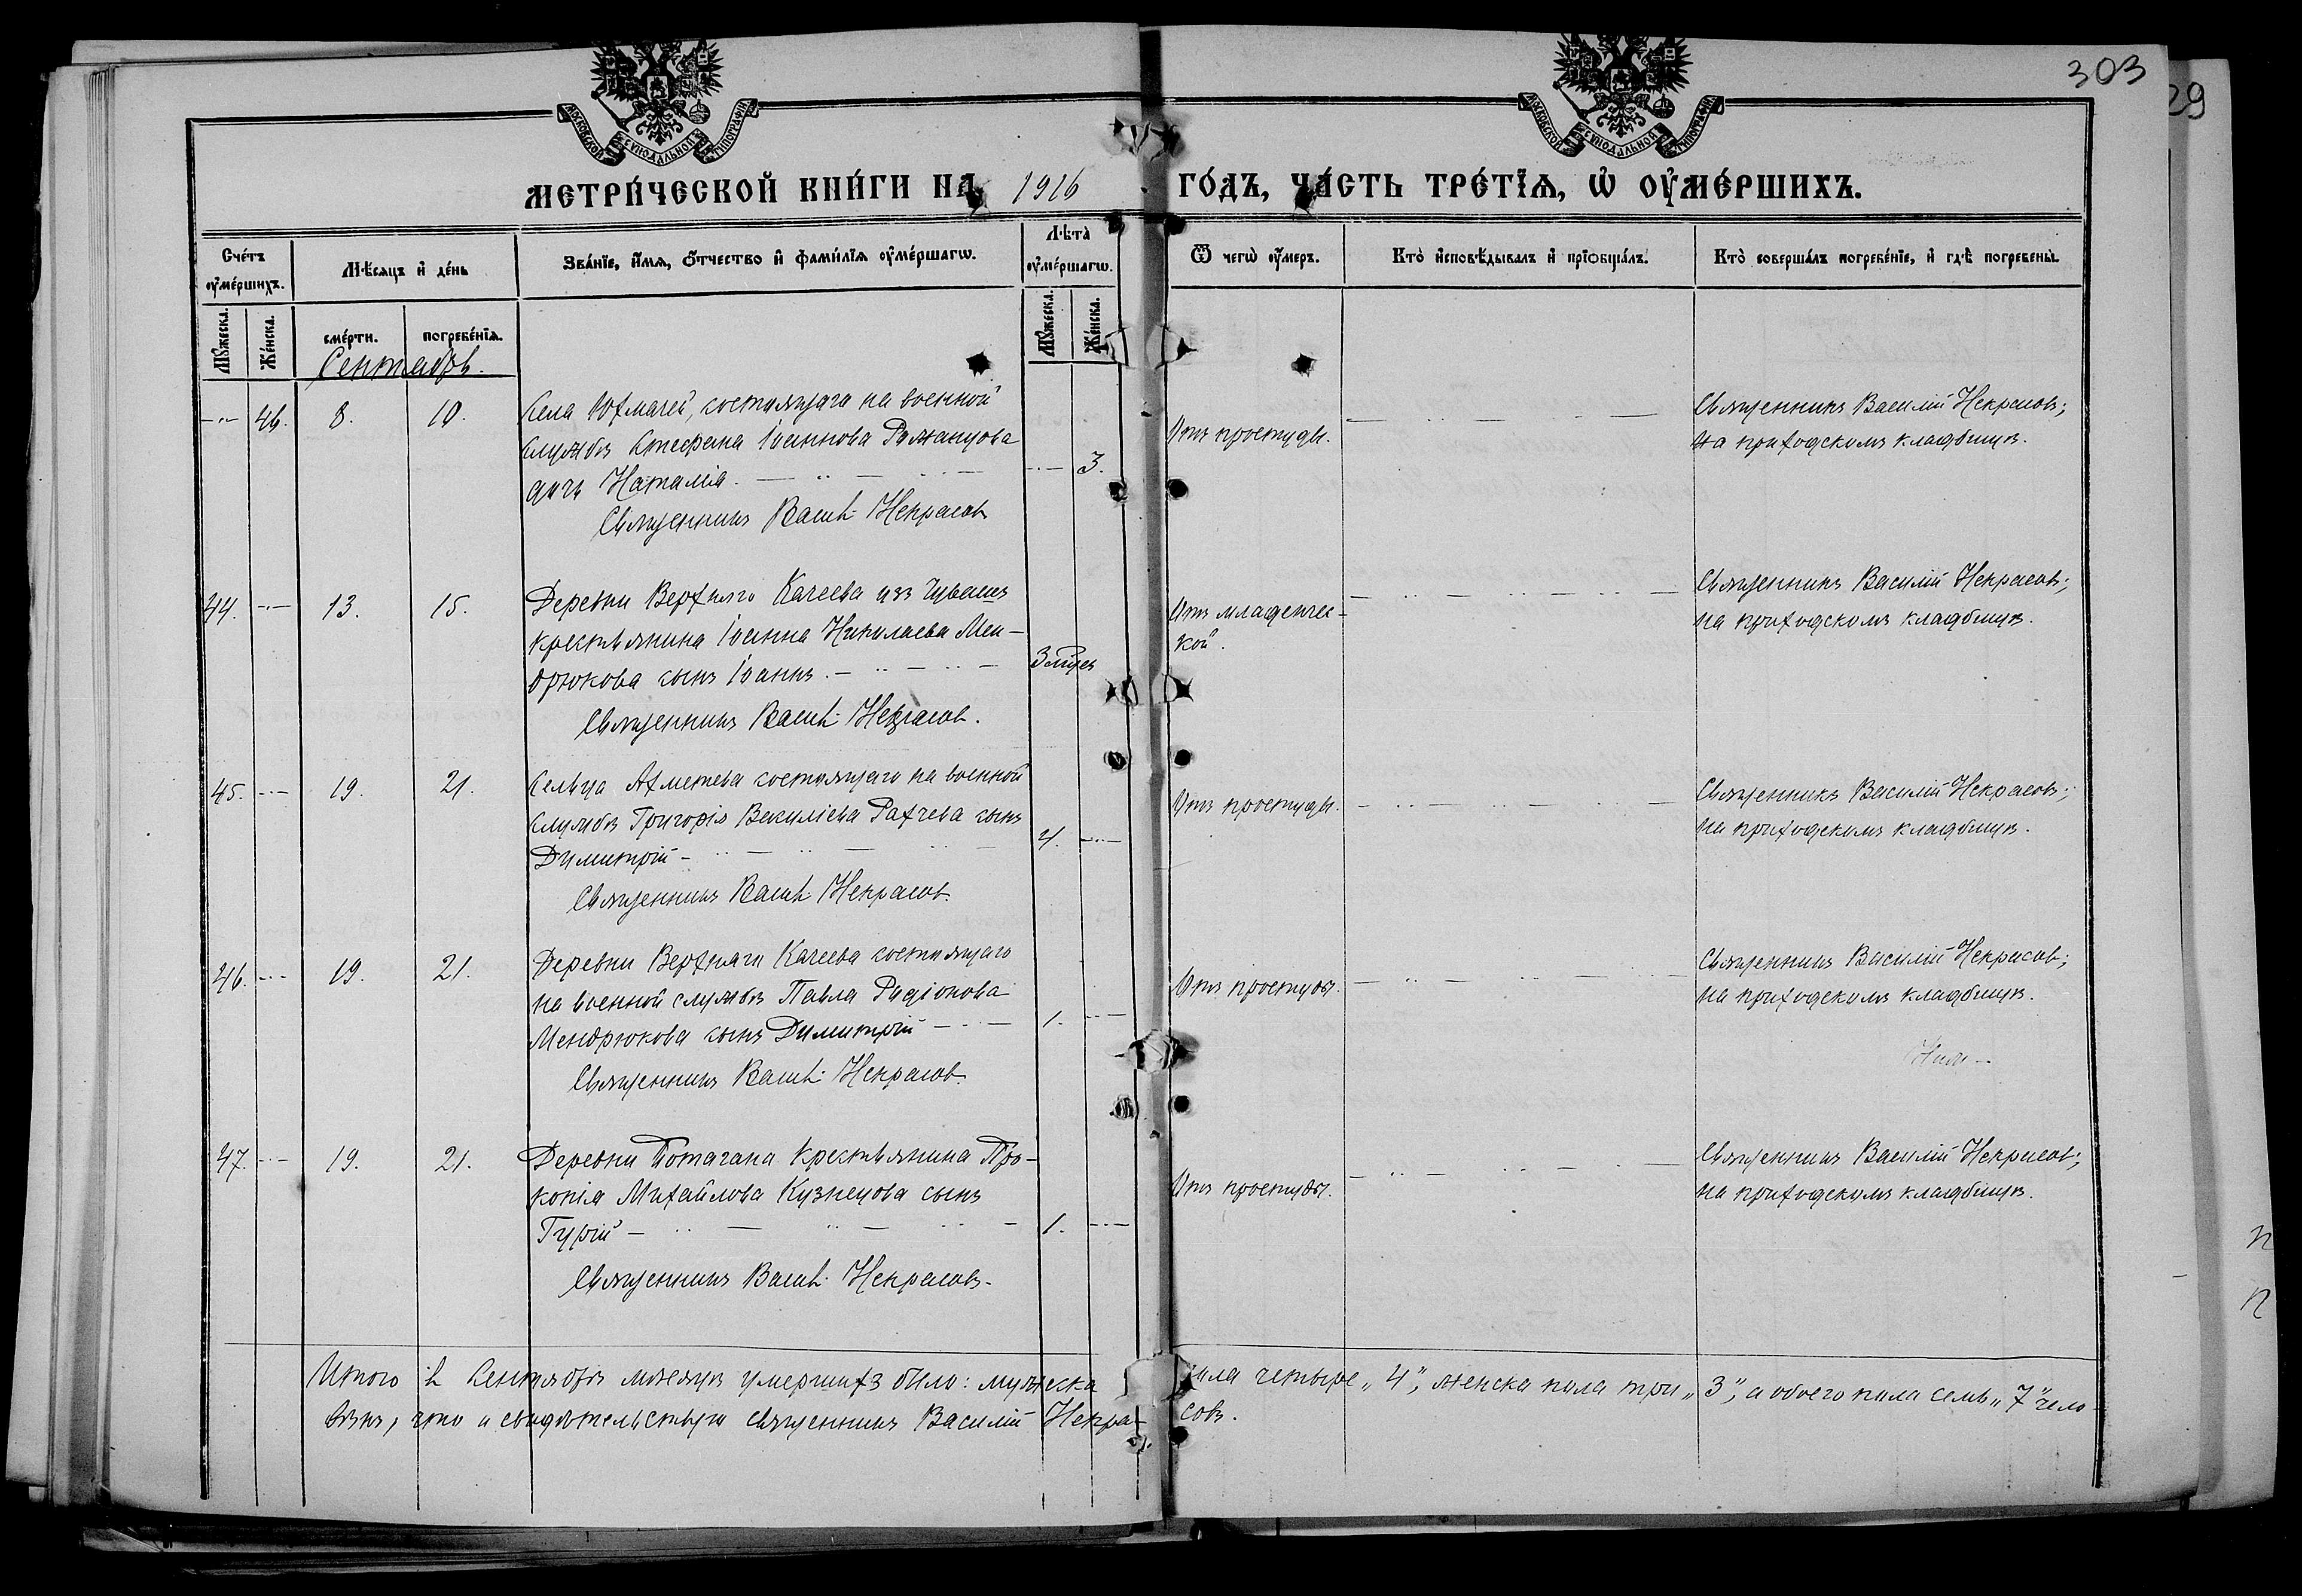 303
29
МОСКОВСКОЙ СѴНОДАЛЬНОЙ ТИПОГРАФІИ
МОСКОВСКОЙ СѴНОДАЛЬНОЙ ТИПОГРАФІИ
МЕТРИ́ЧЕСКОЙ КНИ́ГИ НА 1916 ГО́ДЪ, ЧА́СТЬ ТРЕ́ТЇѦ, Ѡ҆ ОУ҆МЕ́РШИХЪ.
Сче́тъ оу҆ме́ршихъ.
Мѣ́сяцъ и҆ де́нь
Зва́нїе, и҆́мѧ, ѻ҆́тчество и҆ фами́лїѧ оу҆ме́ршагѡ.
Лѣта̀ оу҆ме́ршагѡ.
Ѿ чегѡ̀ оу҆́меръ.
Кто̀ и҆сповѣ́дывалъ и҆ прїѡбща́лъ.
Кто̀ соверша́лъ погребе́нїе, и҆ гдѣ̀ погребены̀.
Мꙋ́жеска. Же́нска. сме́рти. погребе́нїѧ. Мꙋ́жеска. Же́нска.
Сентябрь.
-"- 46. 8. 10. Села Юхмачей, состоящаго на военной
службѣ Стефана Іоаннова Рожанцова
дочь Наталія. -"- 3.
Священникъ Васил. Некрасов
Отъ простуды.
Священникъ Василій Некрасовъ;
на приходскомъ кладбищѣ.
44. -"- 13. 15. Деревни Верхняго Качеева изъ Чувашъ
крестьянина Іоанна Николаева Мен-
дрюкова сынъ Іоаннъ. 3 мѣсц
Священникъ Васил. Некрасов.
Отъ младенчес-
кой.
Священникъ Василій Некрасовъ;
на приходскомъ кладбищѣ.
45. -"- 19. 21. Сельца Ахметева состоящаго на военной
службѣ Григорія Василіева Рахчева сынъ
Димитрій 4. -"-
Священникъ Васил. Некрасов.
Отъ простуды.
Священникъ Василій Некрасовъ;
на приходскомъ кладбищѣ.
46. -"- 19. 21. Деревни Верхняго Качеева состоящаго
на военной службѣ Павла Родіонова
Мендрюкова сынъ Димитрій 1. -"-
Священникъ Васил. Некрасов.
Отъ простуды.
Священникъ Василій Некрасовъ;
на приходскомъ кладбищѣ.
47. -"- 19. 21. Деревни Ботагана крестьянина Про-
копія Михайлова Кузнецова сынъ
Гурій 1. -"-
Священникъ Васил. Некрасовъ.
Отъ простуды.
Священникъ Василій Некрасовъ;
на приходскомъ кладбищѣ.
Итого въ Сентябрѣ мѣсяцѣ умершихъ было: мужеска пола четыре „4”, женска пола три „3”, а обоего пола семь „7” чело-
вѣкъ, что и свидѣтельствую священникъ Василій Некра-
совъ.